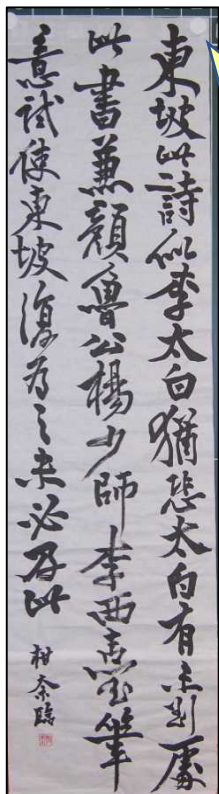 東坡此詩似李太白猶恐太白有未到處
此書兼顔魯公楊少師李西臺筆
意試使東坡復為之未必及此
柑奈臨